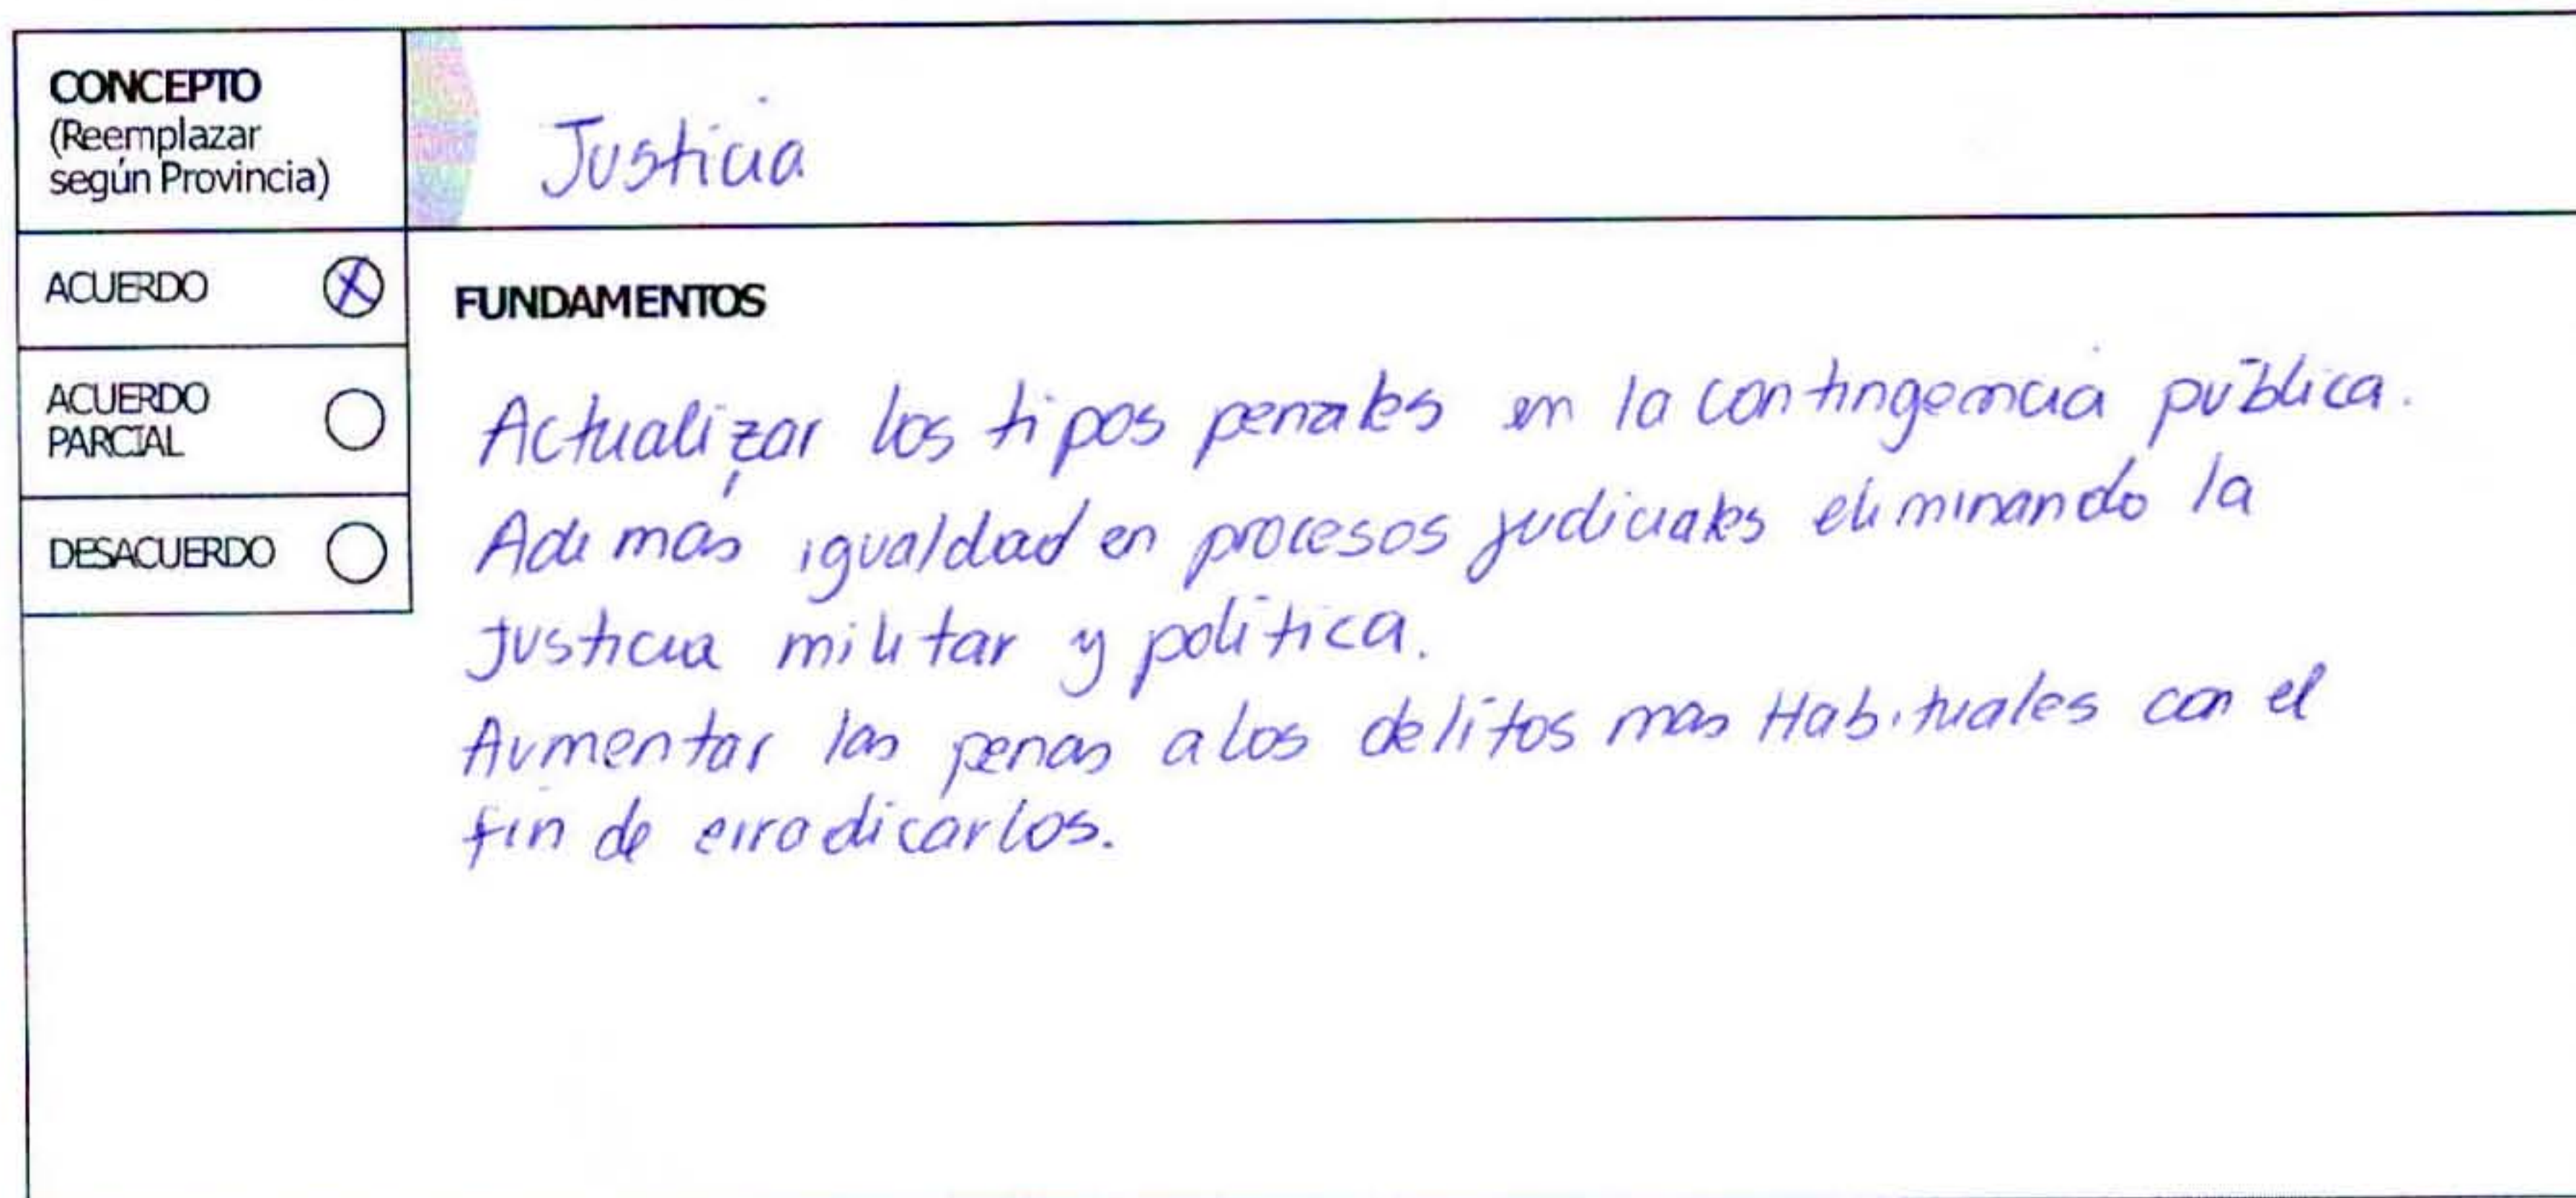 CONCEPTO
(Reemplazar
según Provincia)
Justicia
ACUERDO
ACUERDO
PARCIAL
DESACUERDO
FUNDAMENTOS
Actualizar los tipos penales en la contingencia pública.
Además igualdad en procesos judiciales eliminando la
Justicia militar y política.
Aumentar las penas a los delitos mas Habituales con el
fin de erradicarlos.